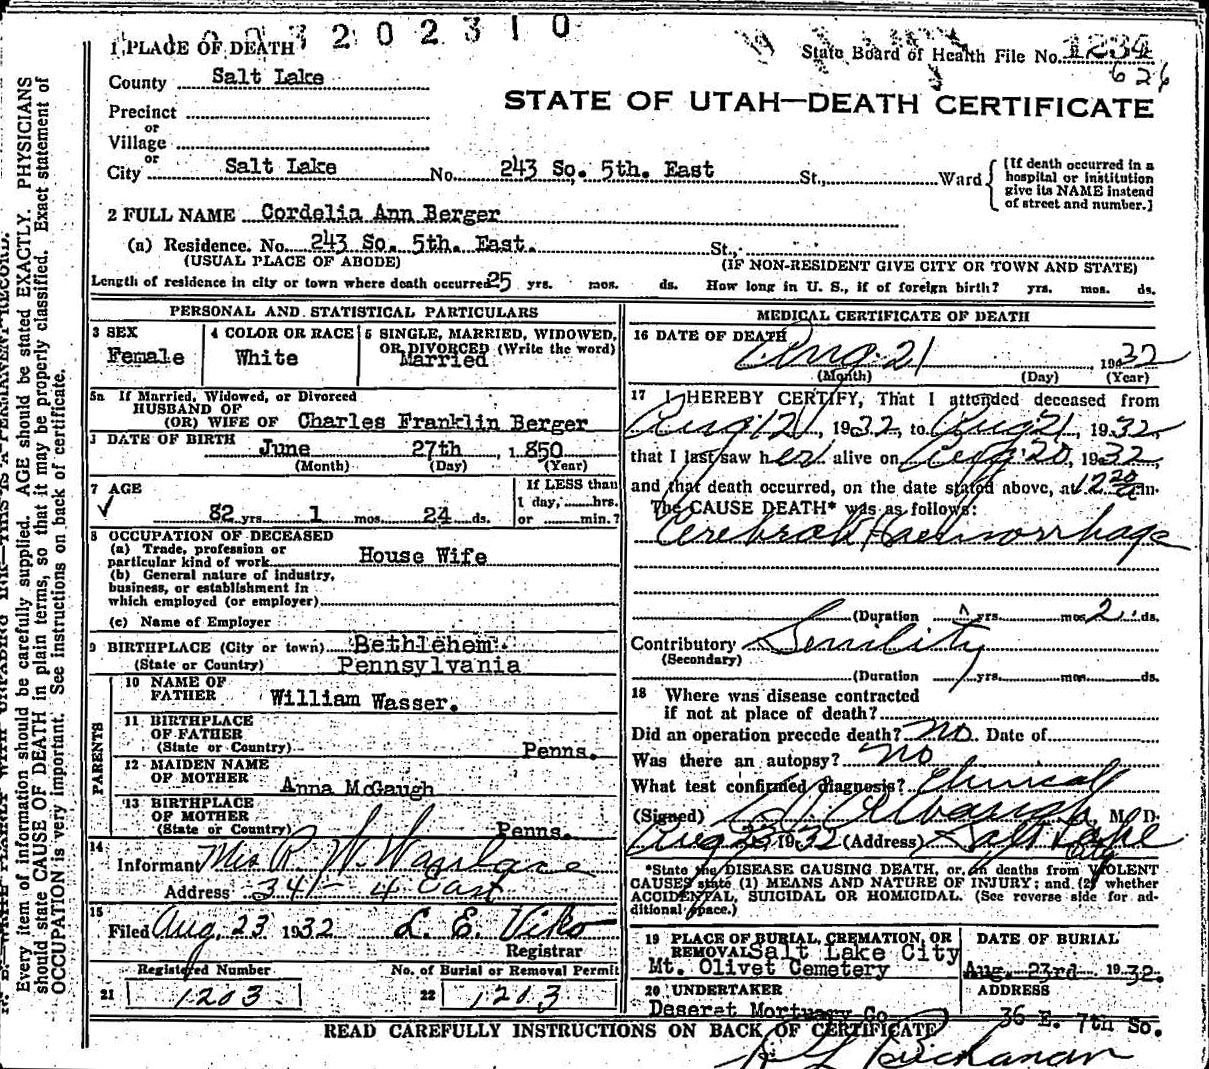 1 PLACE OF DEATH 202310
State Board of Health File No. 1234
626
County Salt Lake
STATE OF UTAH—DEATH CERTIFICATE
Precinct
or
Village
or
City Salt Lake No. 243 So. 5th. East St., Ward
[If death occurred in a
hospital or institution
give its NAME instead
of street and number.]
2 FULL NAME Cordelia Ann Berger
(a) Residence. No. 243 So. 5th. East. St.,
(USUAL PLACE OF ABODE) (IF NON-RESIDENT GIVE CITY OR TOWN AND STATE)
Length of residence in city or town where death occurred 25 yrs. mos. ds. How long in U. S., if of foreign birth? yrs. mos. ds.
PERSONAL AND STATISTICAL PARTICULARS
3 SEX
Female
4 COLOR OR RACE
White
5 SINGLE, MARRIED, WIDOWED,
OR DIVORCED (Write the word)
Married
5a If Married, Widowed, or Divorced
HUSBAND OF
(OR) WIFE OF Charles Franklin Berger
DATE OF BIRTH
June 27th, 1850
(Month) (Day) (Year)
7 AGE
82 yrs. 1 mos. 24 ds.
If LESS than
1 day, hrs.
or min.?
8 OCCUPATION OF DECEASED
(a) Trade, profession or
particular kind of work House Wife
(b) General nature of industry,
business, or establishment in
which employed (or employer)
(c) Name of Employer
9 BIRTHPLACE (City or town) Bethlehem
(State or Country) Pennsylvania
PARENTS
10 NAME OF
FATHER William Wasser.
11 BIRTHPLACE
OF FATHER
(State or Country) Penns.
12 MAIDEN NAME
OF MOTHER
Anna McGaugh
13 BIRTHPLACE
OF MOTHER
(State or Country) Penns.
14
Informant Mrs R. W. Wallace
Address 341 - 4 East
15
Filed Aug. 23 1932 L. E. Viko
Registrar
Registered Number No. of Burial or Removal Permit
21 1203 22 1203
MEDICAL CERTIFICATE OF DEATH
16 DATE OF DEATH
Aug. 21, 1932
(Month) (Day) (Year)
17 I HEREBY CERTIFY, That I attended deceased from
Aug 21, 1932, to Aug 21, 1932,
that I last saw her alive on Aug 20, 1932,
and that death occurred, on the date stated above, at 12 20 a.m.
The CAUSE DEATH* was as follows:
Cerebral Haemorrhage
(Duration yrs. mos. 2 ds.
Contributory Senility
(Secondary)
(Duration yrs. mos. ds.
18 Where was disease contracted
if not at place of death?
Did an operation precede death? no. Date of
Was there an autopsy? no
What test confirmed diagnosis? Clinical
(Signed) M D.
Aug 23, 1932 (Address) Salt Lake
City
*State the DISEASE CAUSING DEATH, or, in deaths from VIOLENT
CAUSES state (1) MEANS AND NATURE OF INJURY; and (2) whether
ACCIDENTAL, SUICIDAL OR HOMICIDAL. (See reverse side for ad-
ditional space.)
19 PLACE OF BURIAL, CREMATION, OR
REMOVAL Salt Lake City
Mt. Olivet Cemetery
DATE OF BURIAL
Aug. 23rd 1932.
20 UNDERTAKER
Deseret Mortuary Co
ADDRESS
36 E. 7th So.
READ CAREFULLY INSTRUCTIONS ON BACK OF CERTIFICATE
Buchanan
Every item of information should be carefully supplied. AGE should be stated EXACTLY. PHYSICIANS
should state CAUSE OF DEATH in plain terms, so that it may be properly classified. Exact statement of
OCCUPATION is very important. See instructions on back of certificate.